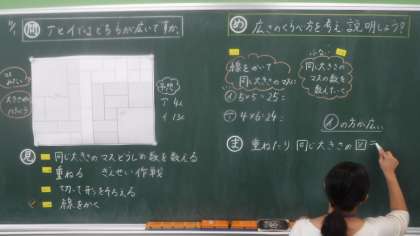 問 アとイではどちらが広いですか。
大きさの
予想
ア 4人
イ 13人
見
同じ大きさのマスどうしの数を数える
重ねる
切って形をそろえる
線をかく
め 広さのくらべ方を考え説明しよう!
線をかいて
同じ大きさのマスに
同じ大きさの
マスの数を
数えたく
イ 5×5=25
ア 4×6=24
イの方が広い
ま 重ねたり同じ大きさの図